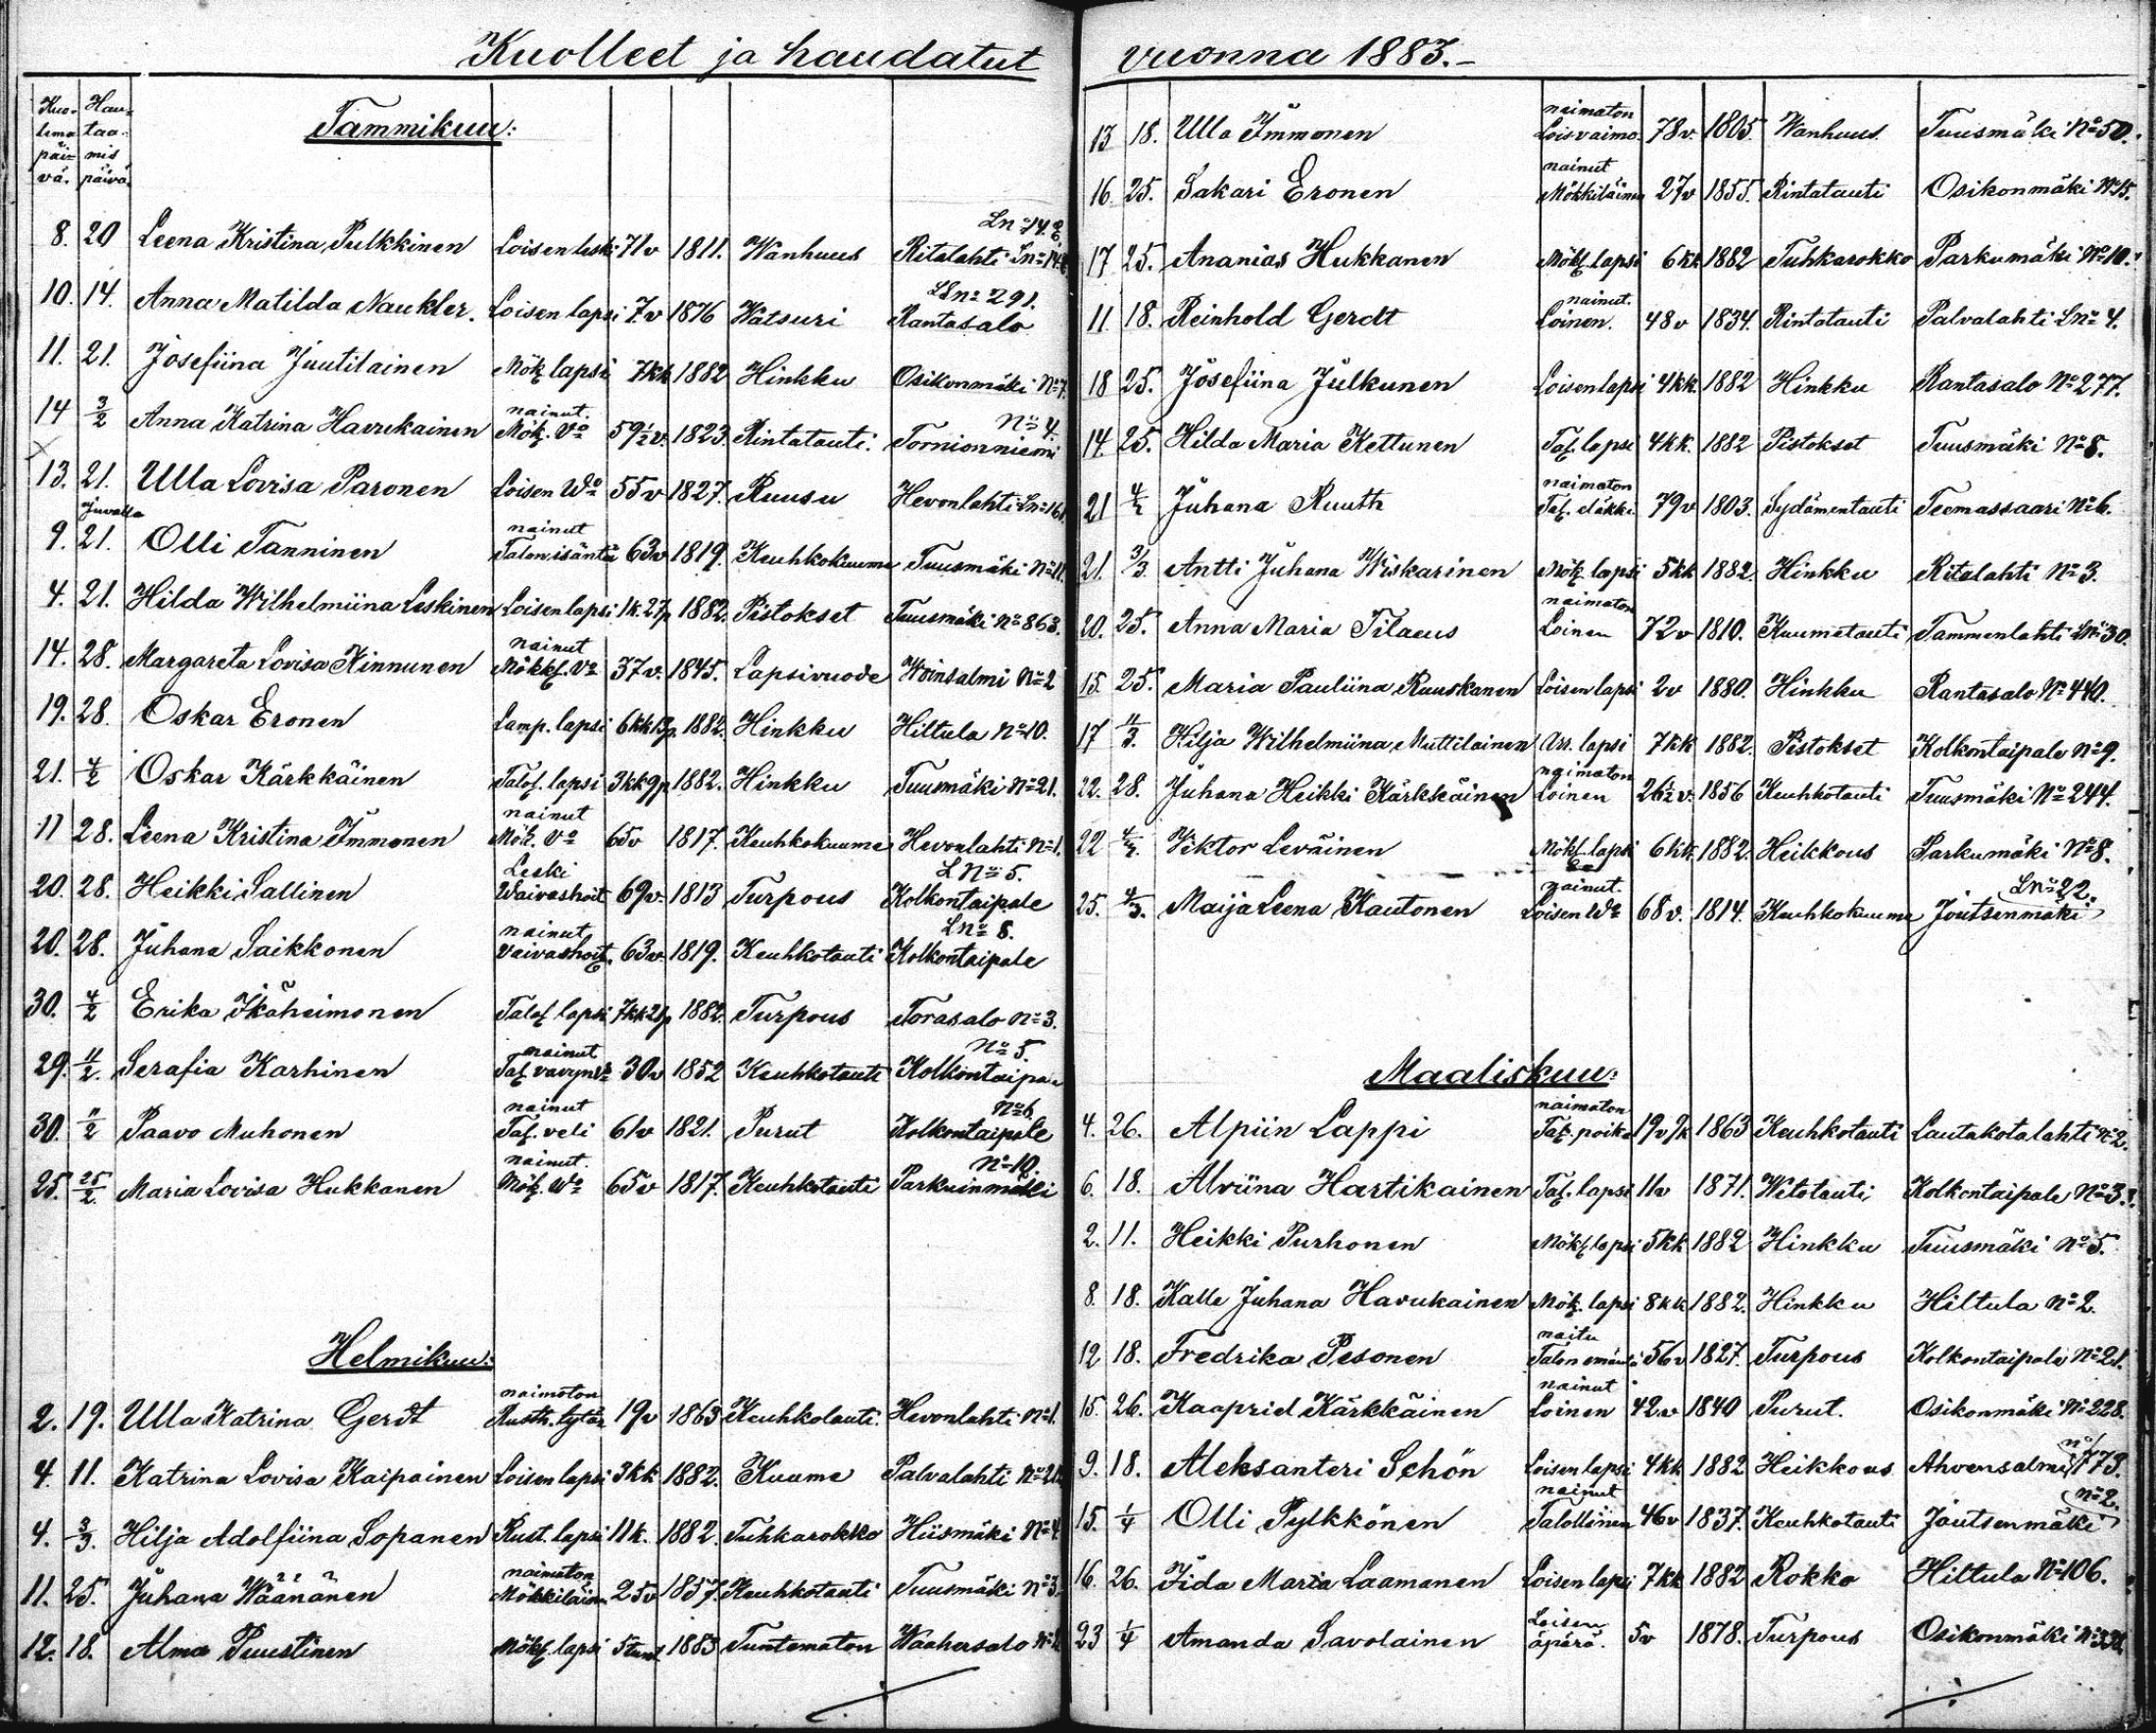 Kuolleet ja haudatut vuonna 1883.-
Kuo- Hau-
lema taa-
päi- mis
vä. päivä.
Tammikuu:
8. 20 Leena Kristina Pulkkinen Loisen leski 71v 1811. Wanhuus Ritalahti
10. 14. Anna Matilda Naukler. Loisen lapsi 7.v 1876 Watsuri Rantasalo LLNo 291.
11. 21. Josefiina Juutilainen Mök lapsi 7kk 1882 Hinkku Osikonmäki No 7.
14 3/2 Anna Katrina Havukainen nainut. Mök. Vo 59½v. 1823. Rintatauti. Tornionniemi No 4.
13. 21. Ulla Lovisa Paronen Loisen Wo 55v 1827. Ruusu Hevonlahti
Juvalla
9. 21. Olli Tanninen nainut Talon isäntä 63v 1819. Keuhkokuume Tuusmäki No 11.
4. 21. Hilda Wilhelmiina Leskinen Loisen lapsi 1k. 27p 1882. Pistokset Tuusmäki No 863.
14. 28. Margareta Lovisa Kinnunen nainut Mökk. Vo 37v. 1845. Lapsivuode Woinsalmi No 2
19. 28. Oskar Eronen Lamp. lapsi 6kk 13p. 1882. Hinkku Hiltula No 10.
21. 4/2 Oskar Kärkkäinen Talol. lapsi 3kk 9p 1882. Hinkku Tuusmäki No 21.
11 28. Leena Kristina Immonen nainut Mök. Vo 65v 1817. Keuhkokuume Hevonlahti No 1.
20. 28. Heikki Sallinen Leski Waivashoit 69v. 1813 Turpous Kolkontaipale LNo 5.
20. 28. Juhana Saikkonen nainut Vaivashoit. 63v. 1819. Keuhkotauti Kolkontaipale LNo 8.
30. 4/2 Erika Ikäheimonen Talol lapsi 7kk 21p 1882. Turpous Torasalo No 3.
29. 11/2. Serafia Karhinen nainut Tal. vävyn Vo 30v 1852 Keuhkotauti Kolkontaipale No 5.
30. 11/2 Paavo Muhonen nainut Tal. veli 61v 1821. Purut Kolkontaipale No 6.
25. 25/2. Maria Lovisa Hukkanen nainut. Mök. Wo 65v 1817. Keuhkotauti Parkuinmäki No 10.
Helmikuu:
2. 19. Ulla Katrina Gerdt naimaton Rusth. tytär 19v 1863 Keuhkotauti. Hevonlahti No 1.
4. 11. Katrina Lovisa Kaipainen Loisen lapsi 3kk 1882. Kuume Palvalahti
4. 3/3. Hilja Adolfiina Sopanen Rust. lapsi 11k. 1882. Tuhkarokko Hiismäki No 4
11. 25. Juhana Wäänänen naimaton Mökkiläinen 25v 1857. Keuhkotauti Tuusmäki No 3.
12. 18. Alma Puustinen Mökl. lapsi 5 tunt 1883 Tuntematon Waahersalo
13 18. Ulla Immonen naimaton Loisvaimo. 78v. 1805. Wanhuus. Tuusmäki No 50.
16 25. Sakari Eronen nainut Mökkiläinen 27v 1855. Rintatauti Osikonmäki No 15.
17 25. Ananias Hukkanen Mökl. lapsi 6kk 1882 Tuhkarokko Parkumäki No 10.
11. 18. Reinhold Gerdt nainut. Loinen. 48v 1834. Rintatauti Palvalahti LNo 4.
18 25. Josefiina Julkunen Loisen lapsi 4kk. 1882 Hinkku Rantasalo No 277.
14. 25. Hilda Maria Kettunen Tal. lapsi 4kk. 1882 Pistokset Tuusmäki No 8.
21 Juhana Ruuth naimaton Tal. eläkk. 79v 1803. Sydämentauti Teemassaari No 6.
21. 3/3. Antti Juhana Wiskarinen Mök lapsi 5kk 1882. Hinkku Ritalahti No 3.
20. 25. Anna Maria Tilaeus naimaton Loinen 72v 1810. Kuumetauti Tammenlahti LNo 30.
15. 25. Maria Pauliina Ruuskanen Loisen lapsi 2v 1880. Hinkku Rantasalo No 440.
17 11/3. Hilja Wilhelmiina Muttilainen Arr. lapsi 7kk 1882. Pistokset Kolkontaipale No 9.
22. 28. Juhana Heikki Kärkkäinen naimaton Loinen 26½v. 1856 Keuhkotauti Tuusmäki No 244.
22 Viktor Leväinen Mökl. lapsi 6kk 1882. Heikkous Parkumäki No 8.
25. 4/3. Maija Leena Kautonen nainut. Loisen Wo 68v. 1814. Keuhkokuume Joutsenmäki LNo 22.
Maaliskuu:
4. 26. Alpiin Lappi naimaton Tal. poika 19v 9k 1863 Keuhkotauti Lautakotalahti No 2.
6. 18. Alviina Hartikainen Tal. lapsi 11v 1871. Wetotauti Kolkontaipale No 3.
2. 11. Heikki Purhonen Mökl. lapsi 5kk 1882 Hinkku Tuusmäki No 5.
8. 18. Kalle Juhana Havukainen Mök. lapsi 8kk 1882. Hinkku Hiltula No 2.
12 18. Fredrika Pesonen naitu Talon emäntä 56v 1827. Turpous Kolkontaipale No 21.
15. 26. Kaaprid Kärkkäinen nainut Loinen 42.v 1840 Purut. Osikonmäki No 228.
9. 18. Aleksanteri Schön Loisen lapsi 4kk 1882 Heikkous Ahvensalmi No 173.
15. 1/4 Olli Pylkkönen nainut Talollinen 46v 1837. Keuhkotauti Joutsenmäki No 2.
16. 26. Iida Maria Laamanen Loisen lapsi 7kk 1882 Rokko Hiltula No 106.
23 1/4 Amanda Savolainen Loisen äpärä. 5v 1878. Turpous Osikonmäki